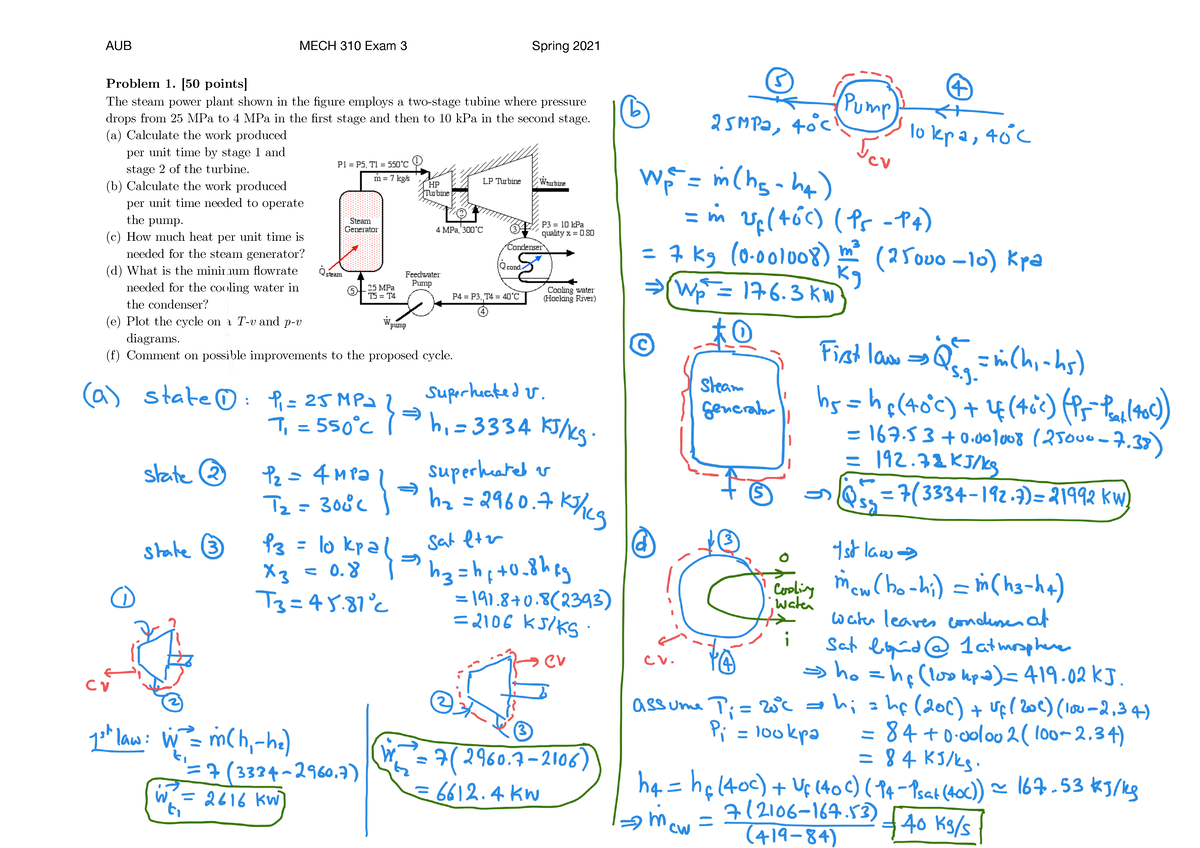 AUB MECH 310 Exam 3 Spring 2021
Problem 1. [50 points]
The steam power plant shown in the figure employs a two-stage tubine where pressure
drops from 25 MPa to 4 MPa in the first stage and then to 10 kPa in the second stage.
(a) Calculate the work produced
per unit time by stage 1 and
stage 2 of the turbine.
(b) Calculate the work produced
per unit time needed to operate
the pump.
(c) How much heat per unit time is
needed for the steam generator?
(d) What is the minimum flowrate
needed for the cooling water in
the condenser?
(e) Plot the cycle on a T-v and p-v
diagrams.
(f) Comment on possible improvements to the proposed cycle.
P1 = P5, T1 = 550°C ①
ṁ = 7 kg/s
HP
Turbine
LP Turbine
Ẇturbine
②
4 MPa, 300°C
③
P3 = 10 kPa
quality x = 0.80
Steam
Generator
Condenser
Q̇steam
Q̇cond
Feedwater
Pump
⑤
25 MPa
T5 = T4
P4 = P3, T4 = 40°C
④
Cooling water
(Hocking River)
Ẇpump
(a) state ①: P₁ = 25 MPa
T₁ = 550°C
⇒ Superheated v.
h₁ = 3334 KJ/kg.
state ② P₂ = 4 MPa
T₂ = 300°C
⇒ superheated v
h₂ = 2960.7 KJ/kg
state ③ P₃ = 10 kpa
X₃ = 0.8
T₃ = 45.81°C
⇒ sat l+v
h₃ = hf + 0.8 hfg
= 191.8 + 0.8(2393)
= 2106 KJ/kg.
①
CV
②
1st law: Ẇt₁ = ṁ(h₁-h₂)
= 7(3334-2960.7)
Ẇt₁ = 2616 KW
CV
②
③
Ẇt₂ = 7(2960.7-2106)
= 6612.4 KW
(b)
⑤ Pump ④
25MPa, 40°C 10 kpa, 40°C
CV
Wp = ṁ(h₅-h₄)
= ṁ vf(40°C) (P₅-P₄)
= 7 kg (0.001008) m³/kg (25000-10) Kpa
⇒ Wp = 176.3 KW
(c)
①
Steam
generator
⑤
First law ⇒ Q̇s.g. = ṁ(h₁-h₅)
h₅ = hf(40°C) + vf(40°C) (P₅-Psat(40C))
= 167.53 + 0.001008 (25000-7.38)
= 192.72 KJ/kg
⇒ Q̇sg = 7(3334-192.7) = 21992 KW
(d)
③
o
Cooling
Water
i
C.V.
④
1st law ⇒
ṁcw(ho-hi) = ṁ(h3-h4)
water leaves condenser at
Sat liquid @ 1 atmosphere
⇒ ho = hf(100 kpa) = 419.02 KJ.
assume Ti = 20°C ⇒ hi = hf(20C) + vf(20C)(100-2.34)
Pi = 100kpa = 84 + 0.001002(100-2.34)
= 84 KJ/kg.
h4 = hf(40C) + vf(40C)(P4-Psat(40C)) ≃ 167.53 KJ/kg
⇒ ṁcw = 7(2106-167.53)/(419-84) = 40 Kg/s